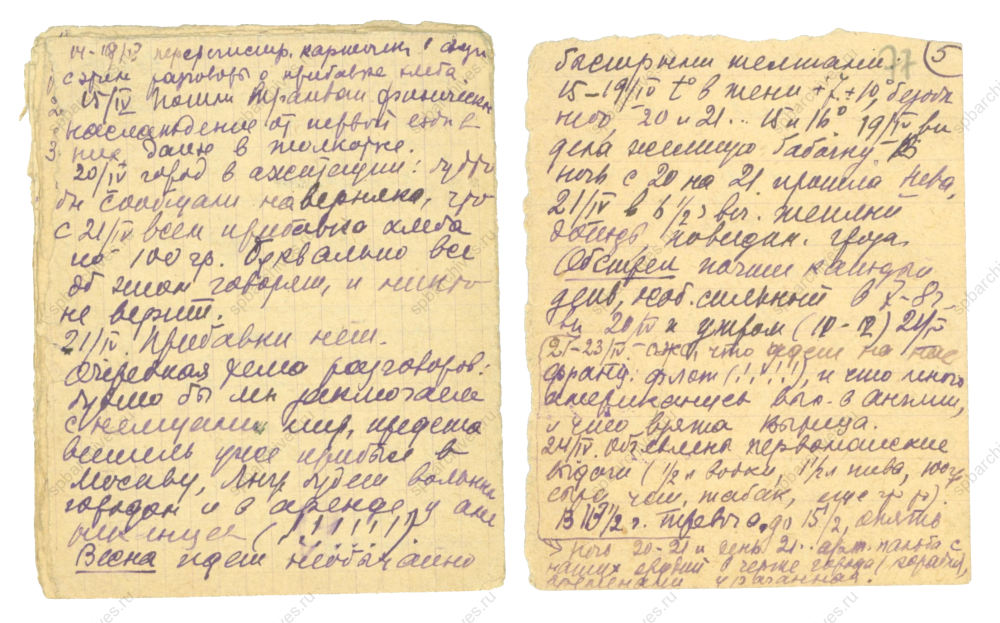 14-18/IV перерегистр. карточки и слухи
с этим разговоры о прибавке хлеба.
15/IV Пошли трамваи физическое
наслаждение от первой езды в
них даже в толкотне.
20/IV город в ажитации: будто
бы сообщали наверняка, что
с 21/IV всем прибавка хлеба
по 100 гр. Буквально все
об этом говорят, и никто
не верит.
21/IV. Прибавки нет.
Очередная тема разговоров:
будто бы мы заключаем
с немцами мир, представи
витель уже прибыл в
Москву, Лнгр будет вольным
городом и в аренде у аме
риканцев (!!!!!!!)
Весна идет необычайно
быстрыми темпами.
(5)
15-19/IV t° в тени +7 +10°, безобл
небо, 20 и 21 .. 15 и 16° 19/IV ви
дела желтую бабочку В
ночь с 20 на 21. прошла Нева,
21/IV в 6 1/2 веч. теплый
дождь, повидан. гроза.
Обстрел почти каждый
день, особ. сильный в 7-8 ч
вч 20/IV и утром (IV-V) 21/IV
21-23/IV. что идет на
франц. флот (!!!!!), и что много
американцев выс. в англии,
и что взята Вырица.
24/IV. Объявлены первомайские
выдачи (1/2 л водки, 1 1/2 л пива, 100 гр
сыра, чай, табак,
В 13 1/2 ч. тревога, до 15 1/2, опять
> Ночь 20-21 и день 21.. арт. пальба с
наших орудий в черте города (корабли,
временами ураганная.